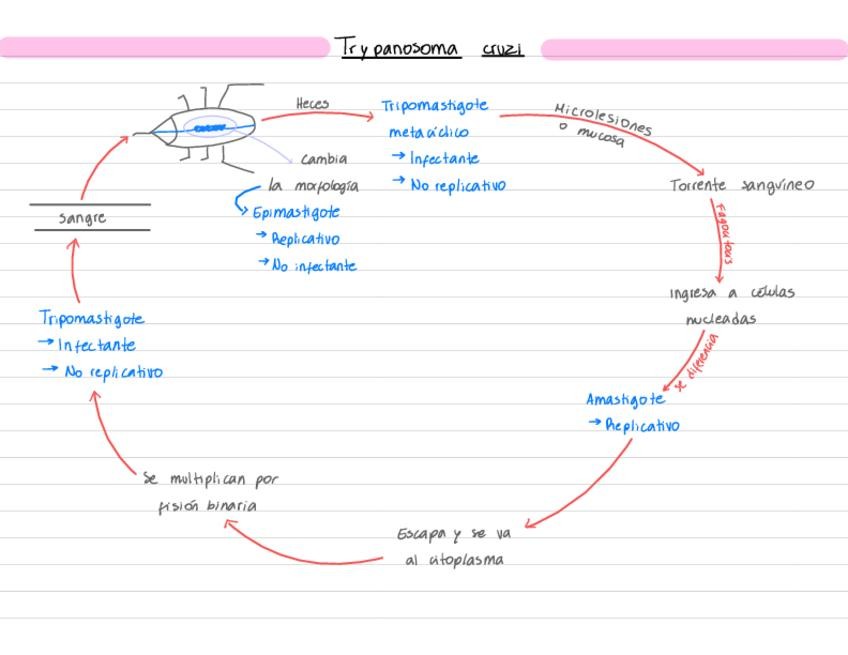 Trypanosoma cruzi
Heces
Tripomastigote
metacíclico
→ Infectante
→ No replicativo
Microlesiones
o mucosa
Torrente sanguíneo
Fagocitosis
Ingresa a células
nucleadas
se diferencia
Amastigote
→ Replicativo
Escapa y se va
al citoplasma
Se multiplican por
fisión binaria
Tripomastigote
→ Infectante
→ No replicativo
sangre
cambia
la morfología
Epimastigote
→ Replicativo
→ No infectante